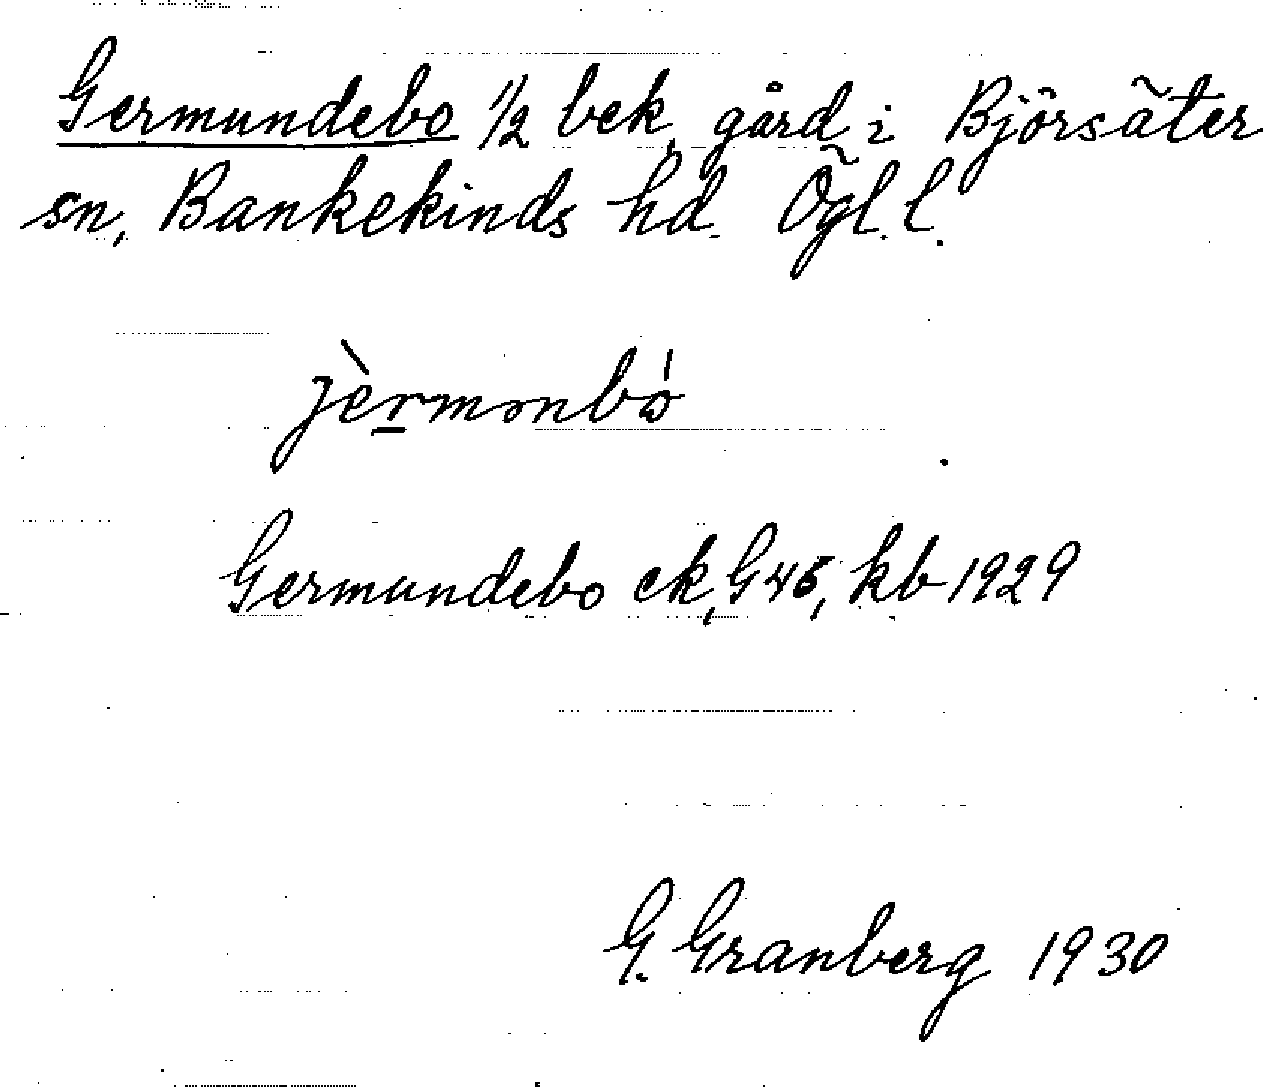 Germundebo 1/2 bek, gård i Björsäter
sn, Bankekinds hd. Ögl. l.
jèrmonbó
Germundebo ek, G 45, kb 1929
G. Granberg 1930